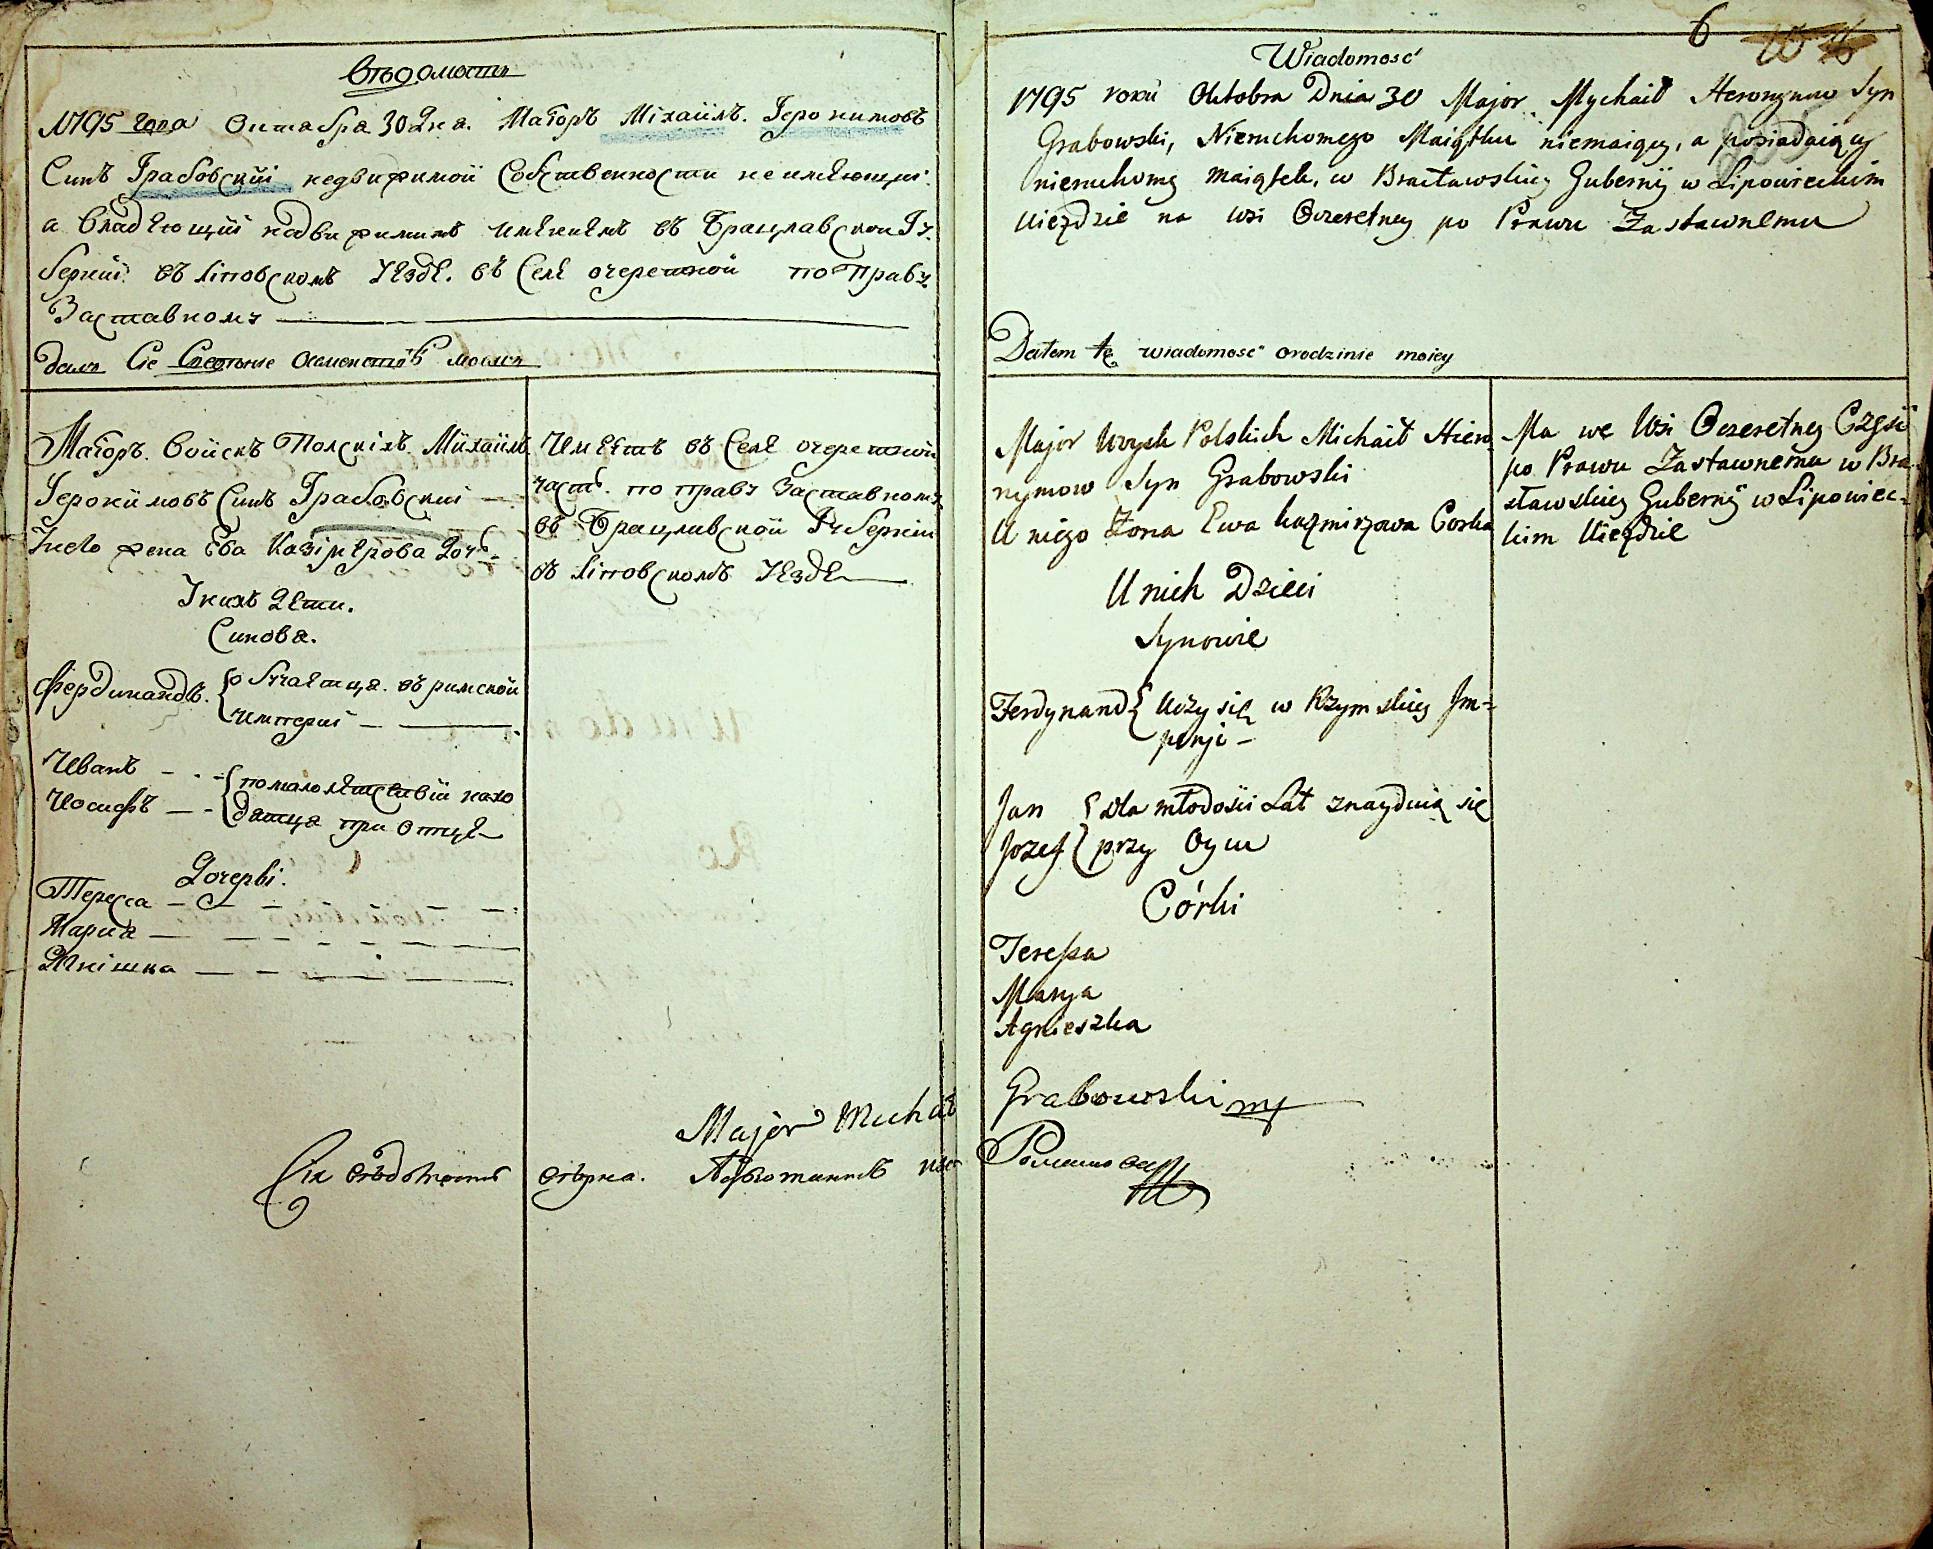 Вѣдомость
1795 года октабра 30 дня. Маїоръ Михаилъ. Іеронимовъ
Синъ Грабовскїй недвижимой собственности неимѣющїй.
а владѣющїй надвижимимъ имѣниемъ въ Брацлавскои Гу
бернїи. въ Липовскомъ уездѣ. въ селѣ очеретной по праву
Заставному
даю сіе
Маїоръ. войскъ Полскихъ. Михаилъ
Іеронимовъ Синъ Грабовскїй
Унего жена Ева Казімѣрова дочь
Унихъ дѣти.
Синова.
Фердинандъ. обучаетца. въ римской
империї
Иванъ
Иосифъ
помалолѣтствїи нахо
датца при отцѣ
Дочерьі.
Тересса
Мариа
Анїшка
Имѣетъ въ селѣ очеретной
часть. по праву заставному
въ Брацлавской Губернїи
въ Липовскомъ уездѣ
Major Michał
Сїя вѣдомость вѣрна.
6
Wiadomosć
1795 roku Oktobra Dnia 30 Major Mychaił Heronymw Syn
Grabowski, Nieruchomego Maiątku niemaiący, a posiadaiący
nieruchomy maiątek, w Bracławskiey Gubernij w Lipowieckim
Uieździe na wsi Oczeretney po Prawu Zastawnemu
Datem tę wiadomosć orodzinie moiey
Major Woysk Polskich Michaił Hiero
nymow Syn Grabowski
U niego Żona Ewa kazmirzowa Corka
U nich Dzieci
Synowie
Ferdynand Uczy się w Rzymskiey Im=
peryi
Jan
Jozef
dla młodosci Lat znayduią się
przy Oycu
Córki
Teressa
Marya
Agnieszka
Grabowski mp
Ma we Wsi Oczeretney Częsć
po Prawu Zastawnemu w Bra
cławskiey Guberny w Lipowiec=
kim Uieździe